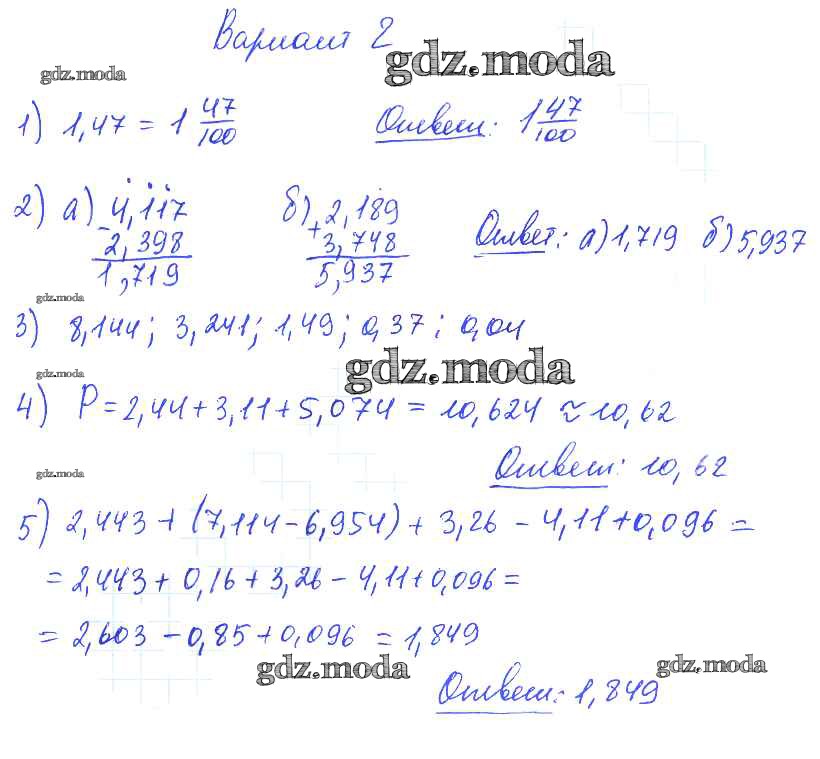 Вариант 2
gdz.moda
gdz.moda
1) 1,47 = 1 47/100 Ответ: 1 47/100
2) а) 4,117 б) 2,189
- 2,398 + 3,748 Ответ: а) 1,719 б) 5,937
1,719 5,937
gdz.moda
3) 8,144; 3,241; 1,49; 0,37; 0,04
gdz.moda
gdz.moda
4) P = 2,44 + 3,11 + 5,074 = 10,624 ≈ 10,62
Ответ: 10,62
gdz.moda
5) 2,443 + (7,114 - 6,954) + 3,26 - 4,11 + 0,096 =
= 2,443 + 0,16 + 3,26 - 4,11 + 0,096 =
= 2,603 - 0,85 + 0,096 = 1,849
gdz.moda
gdz.moda
Ответ: 1,849